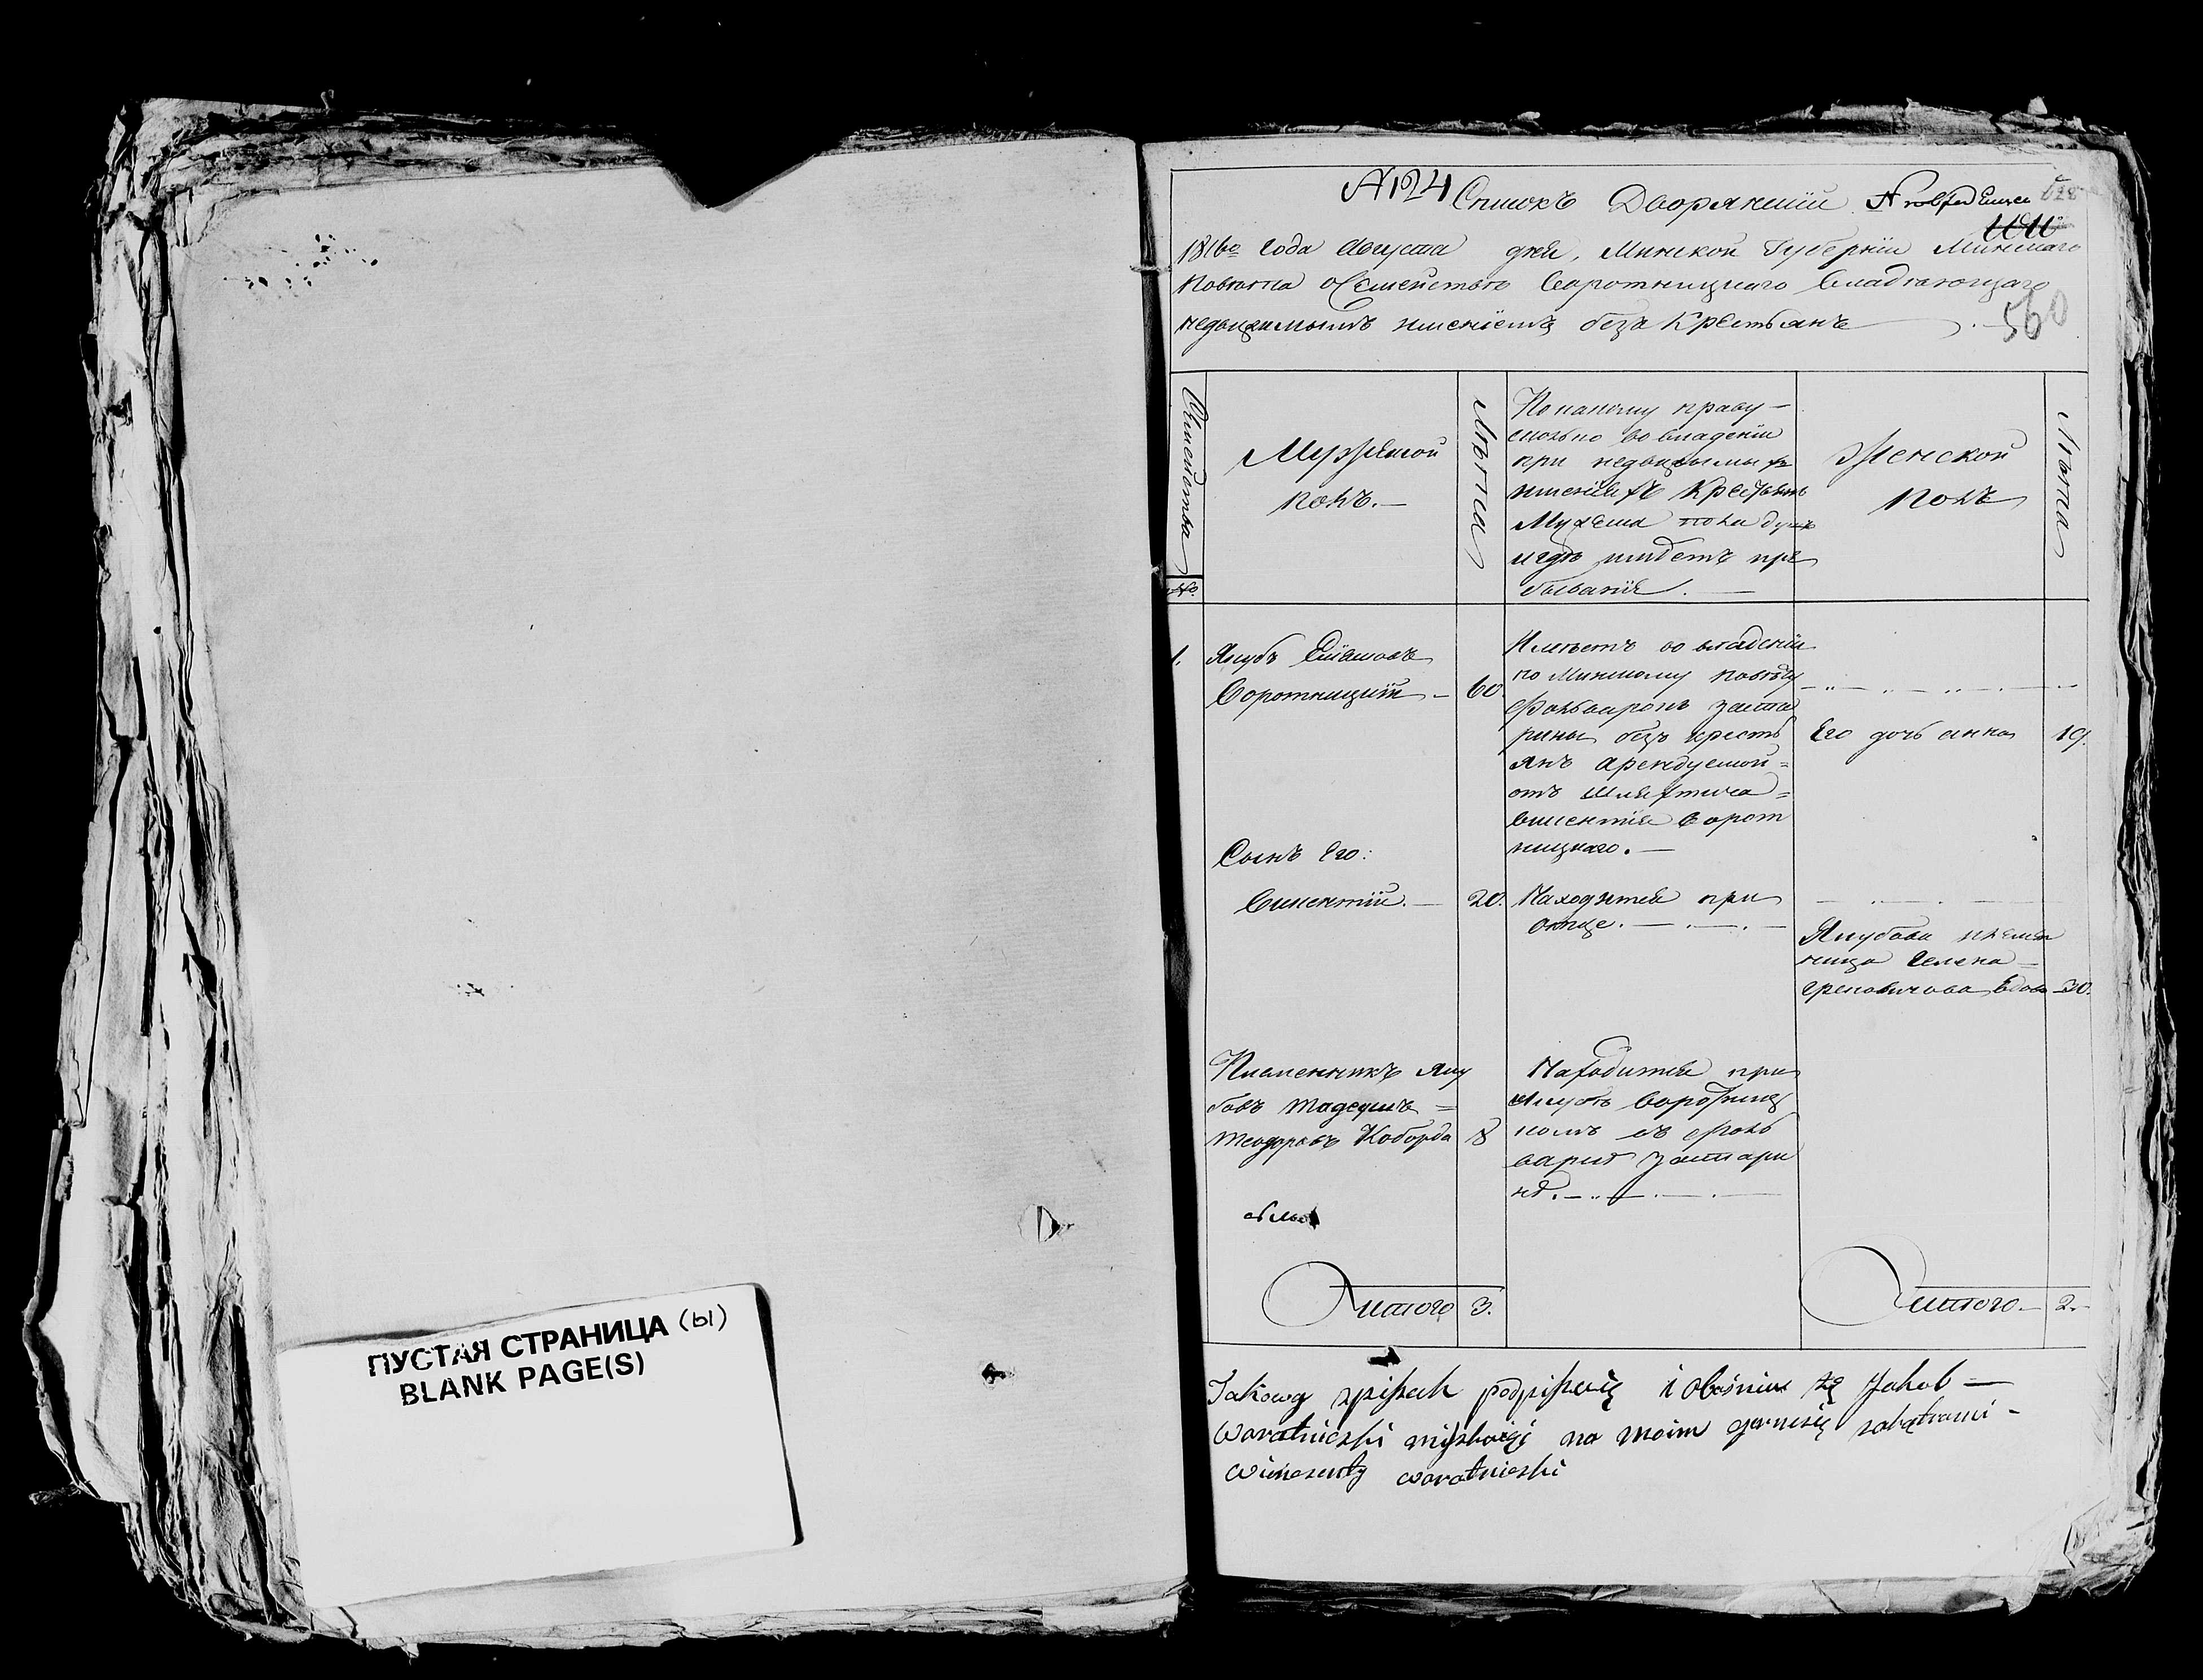 ПУСТАЯ СТРАНИЦА (ы)
BLANK PAGE(S)
№124 Списокъ Дворянскiй
1816го года Августа дня, Минской Губернiи Минскаго
Повѣта о Семействѣ Воротницкаго Владѣющаго
недвижимымъ имѣнiемъ безъ Крестьянъ
560
Семейства
№.
Мужеской
полъ.—
Лѣта
По какому праву
сколько во владенiи
при недвижимыхъ
имѣнiяхъ Крестьянъ
Мужеска пола душъ
и гдѣ имѣетъ пре
быванiе.
Женской
полъ
Лѣта
1. Якубъ
Воротницкiй — 60.
Имѣетъ во владѣнiи
по Минскому повѣту
Фольварокъ заста
рины безъ крестъ
янъ арендуемой
отъ Шляхтича
Викентiя Ворот
ницкаго.—
Его дочь анна 19.
Сынъ Его:
Викентiй.— 20.
Находится при
отце.
Якубова племян
ница Гелена
вдова 30.
Племенникъ Яку
бовъ Тадеушъ
Теодоровъ Коборда 8
Находится при
Якубѣ Воротниц
комъ въ фоль
варкѣ застари
нѣ.
Итого 3.
Итого 2.
Takowy spisek podpisuię i Jakob —
Woratnicski na moim
Wincenty woratnicski